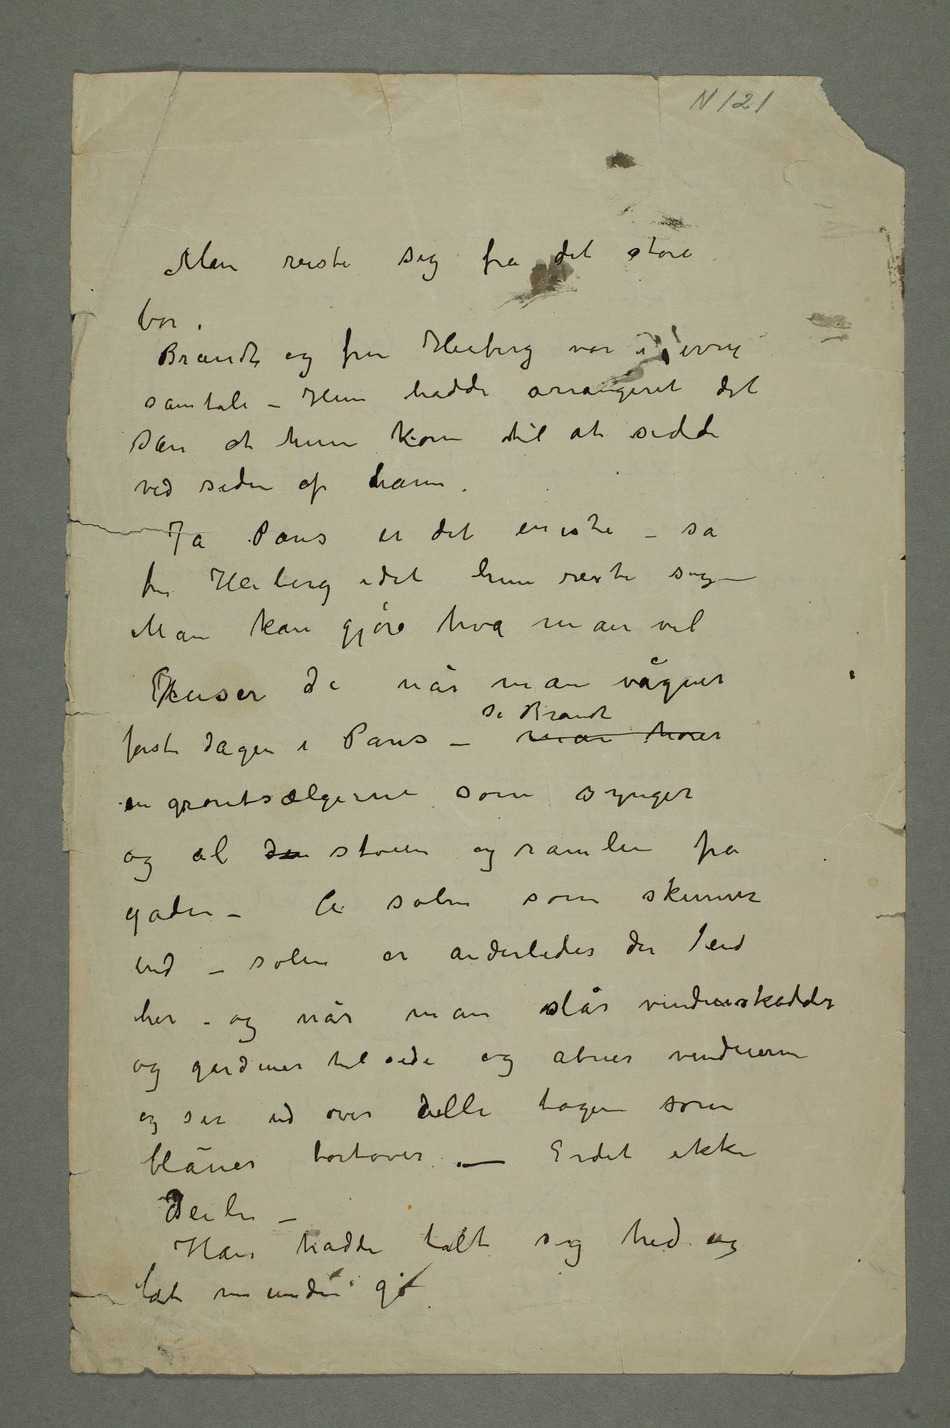 N 121
Man reiste sig fra det store
bor.
Brandt og fru Heiberg var i ivrig
samtale – Hun hadde arrangeret det
san at hun kom til at sidde
ved siden af ham.
Ja Paris er det eneste – sa
fru Heiberg idet hun reiste sig –
Man kan gjøre hva man vil
Husker De når man vågner
sa Brandt
første dagen i Paris – man hører
en grøntsælgerne som synger
og al den støien og ramlen fra
gaden – Å solen som skinner
ind – solen er anderledes der end
her – og når man slår vindusskodder
og gardiner tilside og åbner vinduerne
og ser ud over alle tagene som
blåner bortover – Er det ikke
Deili –
Han hadde talt sig hed og
lot munden gå